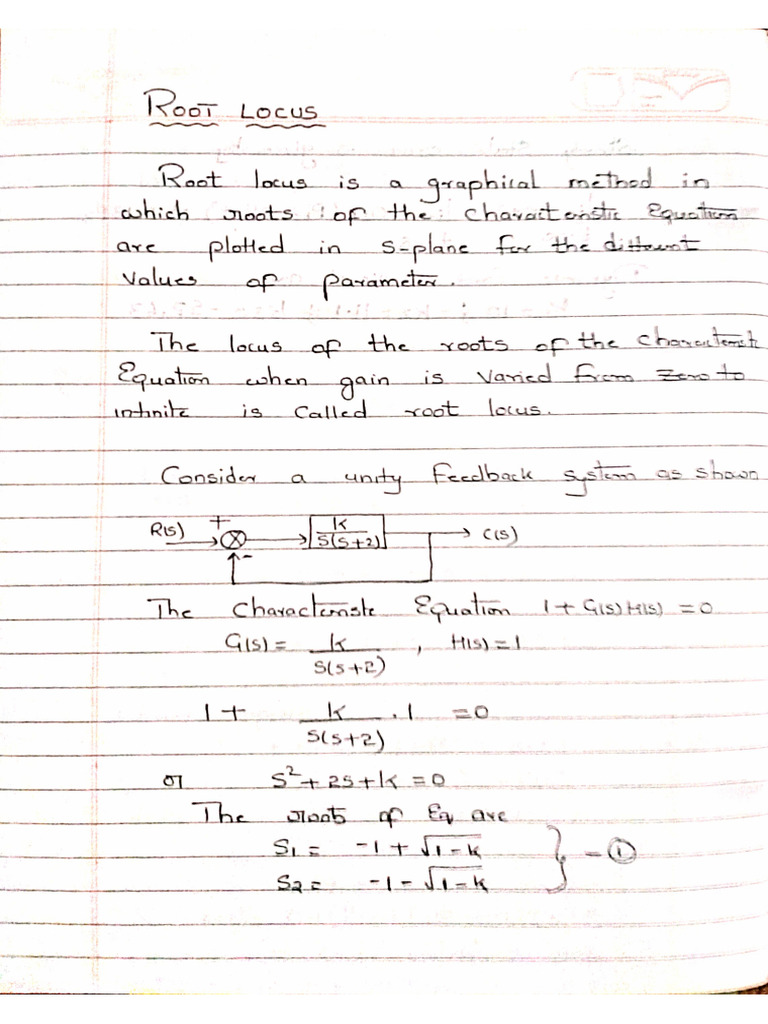 ROOT LOCUS
Root locus is a graphical method in
which roots of the characteristic Equation
are plotted in s-plane for the different
values of parameter.
The locus of the roots of the characteristic
Equation when gain is varied from zero to
infinite is called root locus.
Consider a unity feedback system as shown
R(s) + K/S(S+2) C(s)
-
The characteristic Equation 1 + G(s) H(s) = 0
G(s) = K/S(S+2) , H(s) = 1
1 + K/S(S+2) . 1 = 0
or S² + 2S + K = 0
The roots of Eq are
S1 = -1 + √1-K
S2 = -1 - √1-K } - ①